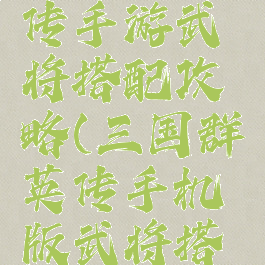 传手游武
将搭配攻
略(三国群
英传手机
版武将搭